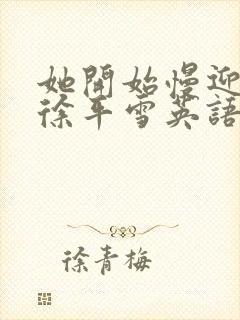 她開始慢迎
徐年雪英語
徐青梅